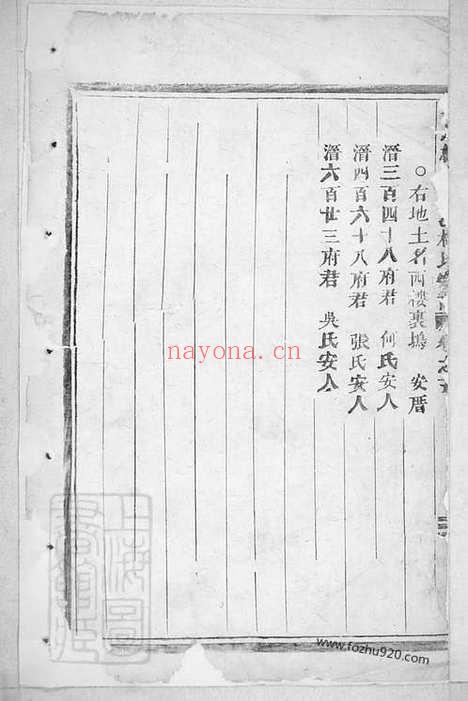 ○右地土名西樓裏塢 安厝
潛三百四十八府君 何氏安人
潛四百六十八府君 張氏安人
潛六百廿三府君 吳氏安人
nayona.cn
www.fozhu920.com